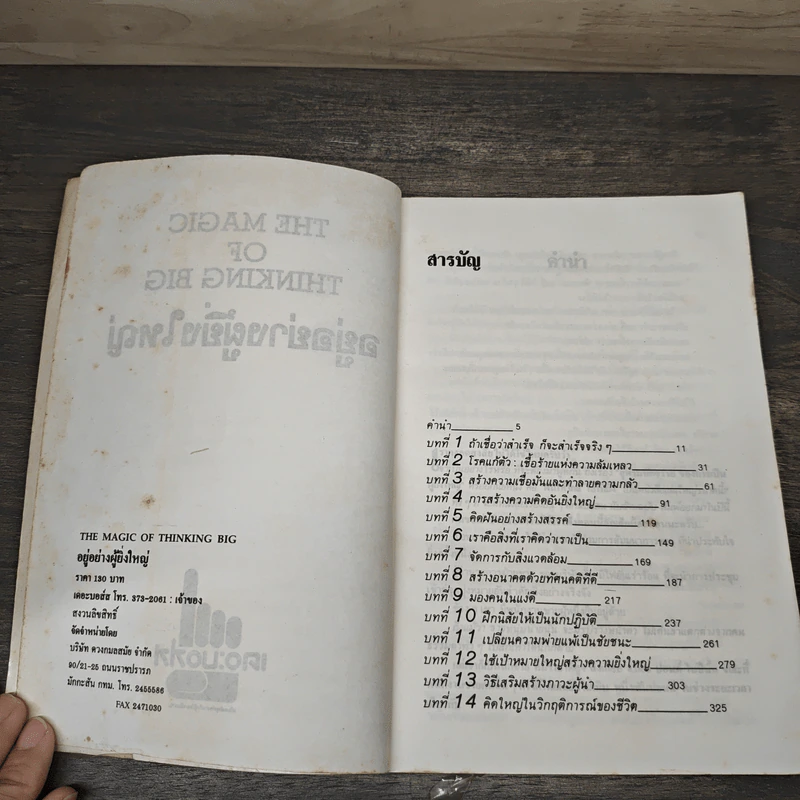 THE MAGIC
OF
THINKING BIG
อยู่อย่างผู้ยิ่งใหญ่
THE MAGIC OF THINKING BIG
อยู่อย่างผู้ยิ่งใหญ่
ราคา 130 บาท
เดอะบอสส โทร. 373-2061 : เจ้าของ
สงวนลิขสิทธิ์
จัดจำหน่ายโดย
บริษัท ดวงกมลสมัย จำกัด
90/21-25 ถนนราชปรารภ
มักกะสัน กทม. โทร. 2455586
FAX 2471030
สารบัญ
คำนำ
คำนำ 5
บทที่ 1 ถ้าเชื่อว่าสำเร็จ ก็จะสำเร็จจริง ๆ 11
บทที่ 2 โรคแก้ตัว : เชื้อร้ายแห่งความล้มเหลว 31
บทที่ 3 สร้างความเชื่อมั่นและทำลายความกลัว 61
บทที่ 4 การสร้างความคิดอันยิ่งใหญ่ 91
บทที่ 5 คิดฝันอย่างสร้างสรรค์ 119
บทที่ 6 เราคือสิ่งที่เราคิดว่าเราเป็น 149
บทที่ 7 จัดการกับสิ่งแวดล้อม 169
บทที่ 8 สร้างอนาคตด้วยทัศนคติที่ดี 187
บทที่ 9 มองคนในแง่ดี 217
บทที่ 10 ฝึกนิสัยให้เป็นนักปฏิบัติ 237
บทที่ 11 เปลี่ยนความพ่ายแพ้เป็นชัยชนะ 261
บทที่ 12 ใช้เป้าหมายใหญ่สร้างความยิ่งใหญ่ 279
บทที่ 13 วิธีเสริมสร้างภาวะผู้นำ 303
บทที่ 14 คิดใหญ่ในวิกฤติการณ์ของชีวิต 325